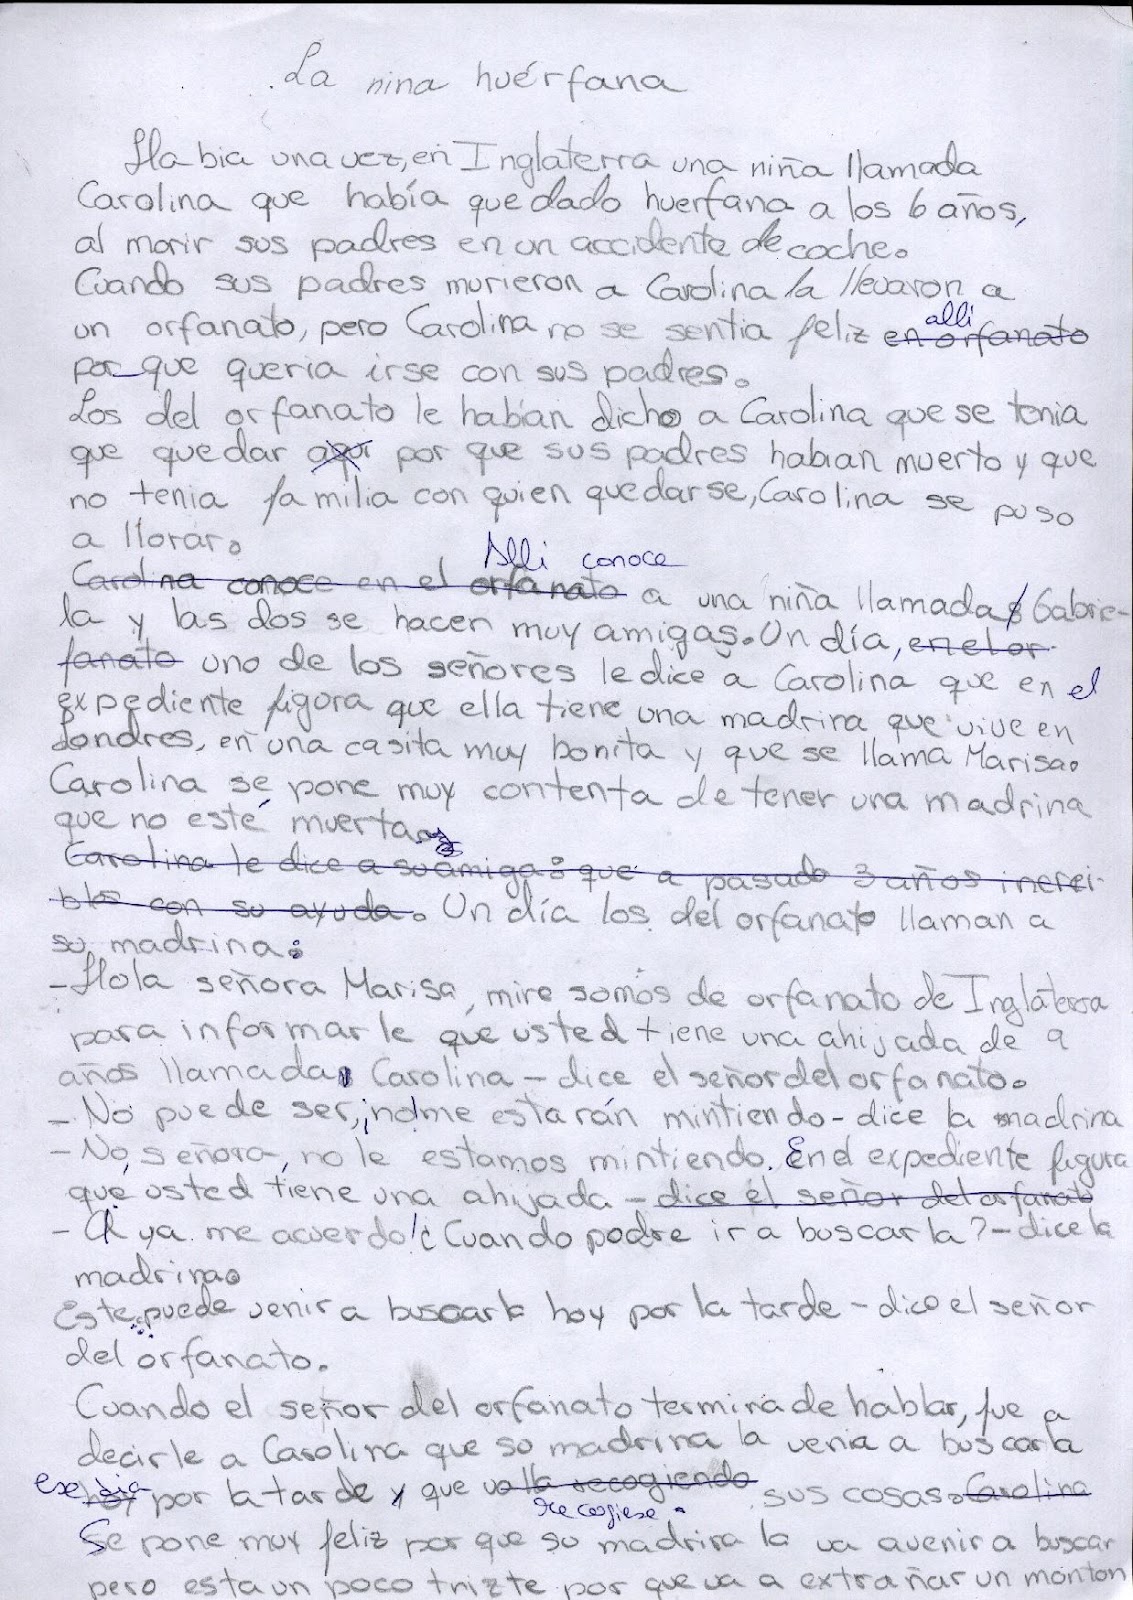 La nina huérfana
Habia una vez, en Inglaterra una niña llamada
Carolina que había quedado huerfana a los 6 años,
al morir sus padres en un accidente de coche.
Cuando sus padres murieron a Carolina la llevaron a
un orfanato, pero Carolina no se sentia feliz en orfanato alli
por que queria irse con sus padres.
Los del orfanato le habían dicho a Carolina que se tenia
que quedar aqui por que sus padres habian muerto y que
no tenia familia con quien quedarse, Carolina se puso
a llorar.
Alli conoce
Carolina conoce en el orfanato a una niña llamada Gabrie-
la y las dos se hacen muy amigas. Un día, en el or-
fanato uno de los señores le dice a Carolina que en el
expediente figura que ella tiene una madrina que vive en
Londres, en una casita muy bonita y que se llama Marisa.
Carolina se pone muy contenta de tener una madrina
que no esté muerta.
Carolina le dice a su amiga: que a pasado 3 años increi-
bles con su ayuda. Un día los del orfanato llaman a
su madrina:
- Hola señora Marisa, mire somos de orfanato de Inglaterra
para informarle que usted tiene una ahijada de 9
años llamada Carolina - dice el señor del orfanato.
- No puede ser, ¡no! me estarán mintiendo - dice la madrina
- No, señora, no le estamos mintiendo. En el expediente figura
que usted tiene una ahijada - dice el señor del orfanato
- A ya me acuerdo! ¿Cuando podre ir a buscarla? - dice la
madrina.
Este puede venir a buscarla hoy por la tarde - dice el señor
del orfanato.
Cuando el señor del orfanato termina de hablar, fue a
decirle a Carolina que su madrina la venia a buscarla
ese dia hoy por la tarde y que recogiendo sus cosas. Carolina
recogiese
Se pone muy feliz por que su madrina la va a venir a buscar
pero esta un poco trizte por que va a extrañar un monton